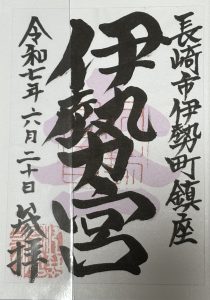 長崎市伊勢町鎮座
伊勢宮
令和七年六月二十日
参拝